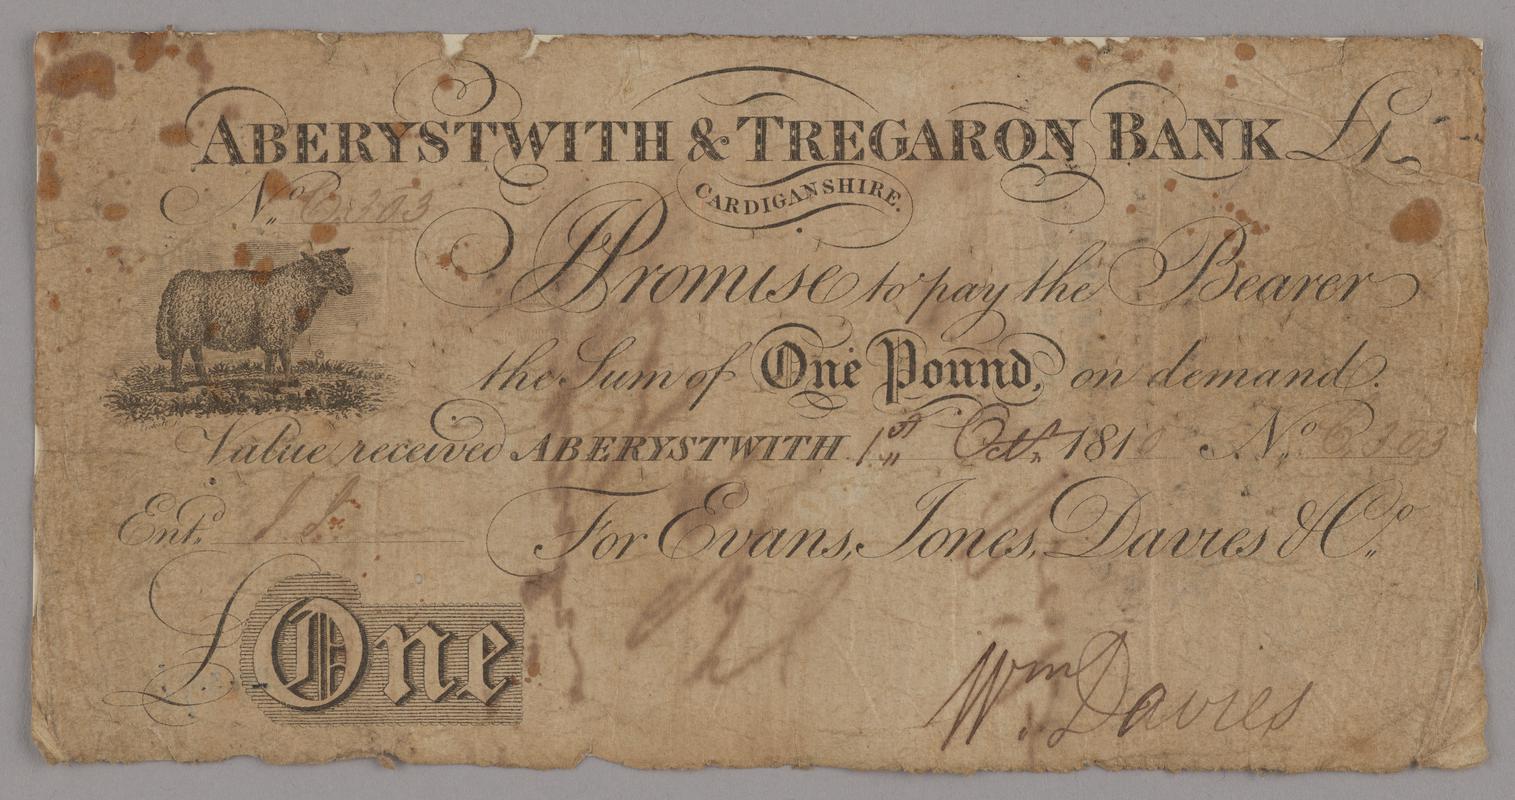 ABERYSTWITH & TREGARON BANK £1
CARDIGANSHIRE.
No. 6,303
I Promise to pay the Bearer
the Sum of One Pound, on demand.
Value received ABERYSTWITH 1st Octr. 1810 No. 6,303
Entd.
For Evans, Jones, Davies & Co.
£One
Wm. Davies